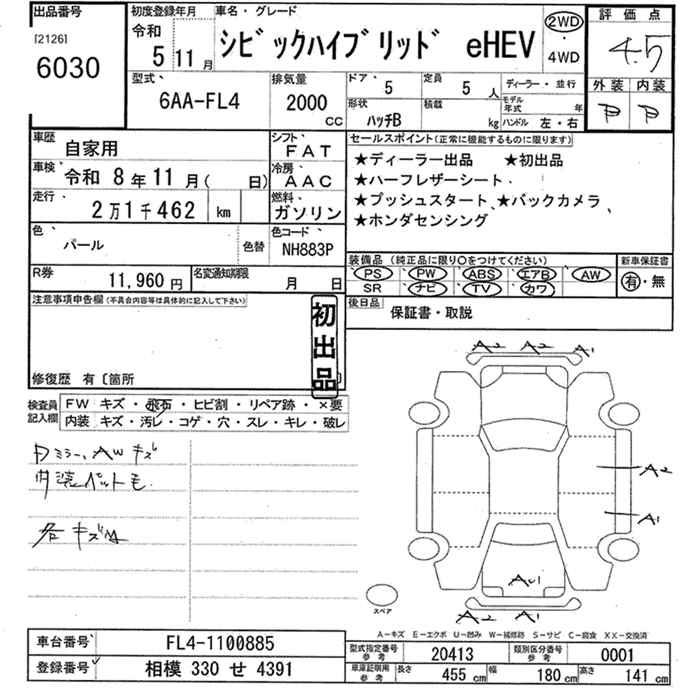 出品番号
[2126]
6030
初度登録年月
令和
5 11月
車名・グレード
シビックハイブリッド eHEV
2WD
・
4WD
評価点
4.5
外装 内装
型式
6AA-FL4
排気量
2000
CC
ドア
5
定員
5 人
ディーラー・並行
形状
ハッチB
積載
kg
モデル年式
年
ハンドル 左・右
車歴
自家用
シフト
FAT
車検
令和 8年11月( 日)
冷房
AAC
走行
2万1千462 km
燃料
ガソリン
色
パール
色替
色コード
NH883P
R券
11,960円
名変通知期限
月 日
セールスポイント(正常に機能するものに限ります)
★ディーラー出品 ★初出品
★ハーフレザーシート
★プッシュスタート ★バックカメラ
★ホンダセンシング
装備品 (純正品に限り○をつけてください)
PS PW ABS エアB AW
SR ナビ TV カワ
新車保証書
有・無
後日品
保証書・取説
注意事項申告欄(不具合内容等は具体的に記入して下さい)
初出品
修復歴 有〔箇所 〕
検査員
記入欄
FW キズ・飛石・ヒビ割・リペア跡・×要
内装 キズ・汚レ・コゲ・穴・スレ・キレ・破レ
Dミラー、AWキズ
内装ペット毛
A2 A2 A1
A2
A1
AU1
A2 A1
スペア
A-キズ E-エクボ U-凹み W-補修跡 S-サビ C-腐食 XX-交換済
車台番号
FL4-1100885
登録番号
相模 330 せ 4391
型式指定番号
参考
20413
類別区分番号
参考
0001
車庫証明用
参考
長さ
455 cm
幅
180 cm
高さ
141 cm